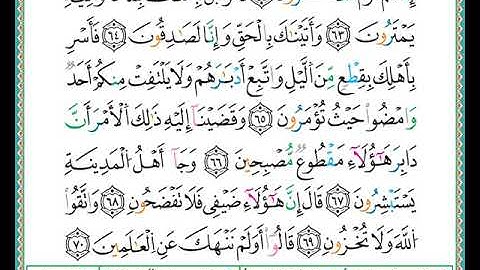 يَمْتَرُونَ ٦٣ وَأَتَيْنَٰكَ بِٱلْحَقِّ وَإِنَّا لَصَٰدِقُونَ ٦٤ فَأَسْرِ
بِأَهْلِكَ بِقِطْعٍ مِّنَ ٱلَّيْلِ وَٱتَّبِعْ أَدْبَٰرَهُمْ وَلَا يَلْتَفِتْ مِنكُمْ أَحَدٌ
وَٱمْضُوا۟ حَيْثُ تُؤْمَرُونَ ٦٥ وَقَضَيْنَآ إِلَيْهِ ذَٰلِكَ ٱلْأَمْرَ أَنَّ
دَابِرَ هَٰٓؤُلَآءِ مَقْطُوعٌ مُّصْبِحِينَ ٦٦ وَجَآءَ أَهْلُ ٱلْمَدِينَةِ
يَسْتَبْشِرُونَ ٦٧ قَالَ إِنَّ هَٰٓؤُلَآءِ ضَيْفِى فَلَا تَفْضَحُونِ ٦٨ وَٱتَّقُوا۟
ٱللَّهَ وَلَا تُخْزُونِ ٦٩ قَالُوٓا۟ أَوَلَمْ نَنْهَكَ عَنِ ٱلْعَٰلَمِينَ ٧٠